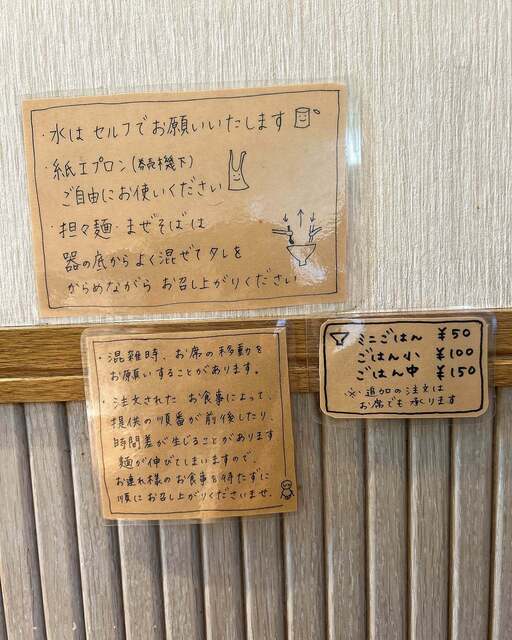 ・水は セルフでお願いいたします
・紙エプロン(券売機下)
ご自由にお使いください
・担々麺・まぜそばは
器の底からよく混ぜてタレを
からめながら お召し上がりください
・混雑時、お席の移動を
お願いすることがあります。
・注文された お食事によって、
提供の順番が前後したり、
時間差が生じることがあります
麺が伸びてしまいますので、
お連れ様のお食事を待たずに
順にお召し上がりくださいませ。
ミニごはん ¥50
ごはん小 ¥100
ごはん中 ¥150
※ 追加の注文は
お席でも承ります